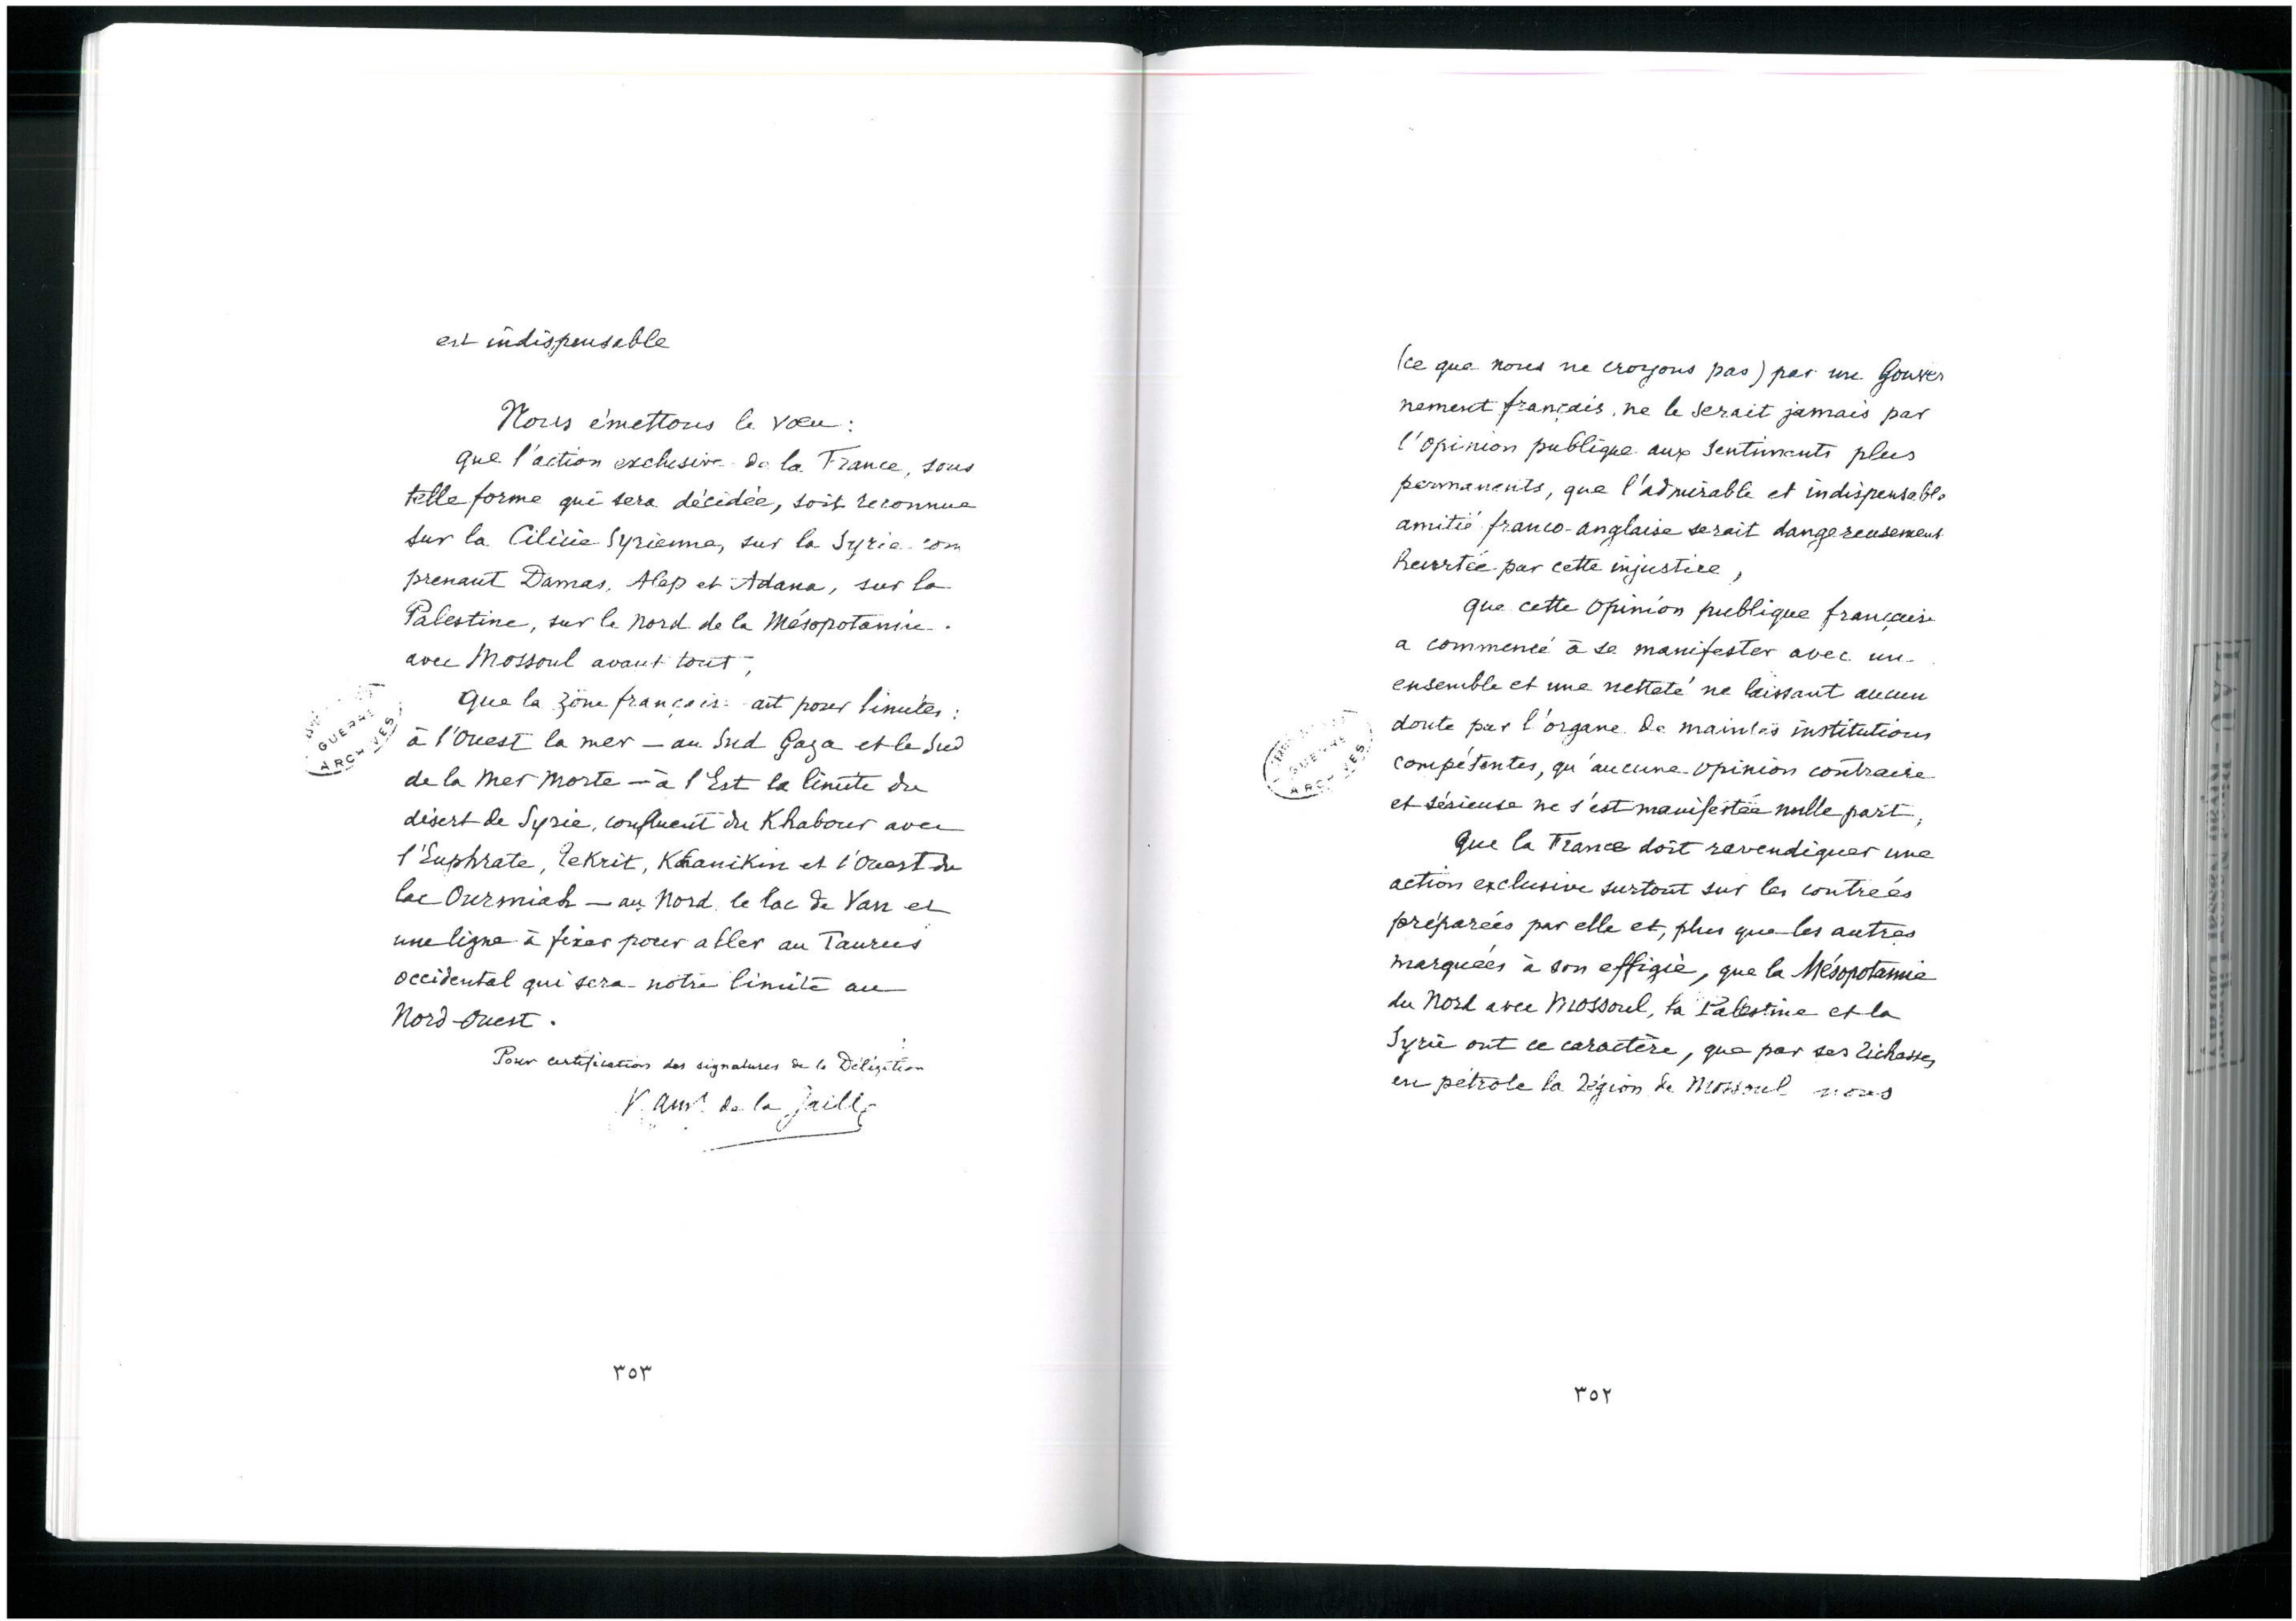 (ce que nous ne croyons pas) par un Gouver
nement français, ne le serait jamais par
l'opinion publique aux sentiments plus
permanents, que l'admirable et indispensable
amitié franco-anglaise serait dangereusement
heurtée par cette injustice,
que cette opinion publique française
a commencé à se manifester avec un
ensemble et une netteté ne laissant aucun
doute par l'organe de maintes institutions
compétentes, qu'aucune opinion contraire
et sérieuse ne s'est manifestée nulle part,
Que la France doit revendiquer une
action exclusive surtout sur les contrées
préparées par elle et, plus que les autres
marquées à son effigie, que la Mésopotamie
du Nord avec Mossoul, la Palestine et la
Syrie ont ce caractère, que par ses richesses
en pétrole la région de Mossoul nous
GUERRE
ARCHIVES
٣٥٢
est indispensable
Nous émettons le vœu :
que l'action exclusive de la France, sous
telle forme qui sera décidée, soit reconnue
sur la Cilicie Syrienne, sur la Syrie com
prenant Damas, Alep et Adana, sur la
Palestine, sur le Nord de la Mésopotamie
avec Mossoul avant tout,
Que la zône française ait pour limites :
à l'Ouest la mer — au Sud Gaza et le Sud
de la Mer Morte — à l'Est la limite du
désert de Syrie, confluent du Khabour avec
l'Euphrate, Tekrit, Khanikin et l'Ouest du
lac Ourmiah — au Nord le lac de Van et
une ligne à fixer pour aller au Taurus
occidental qui sera notre limite au
Nord-Ouest.
Pour certification des signatures de la Délégation
V. Am. de la Jaille
GUERRE
ARCHIVES
٣٥٣
LAU - Riyad Nassar Library